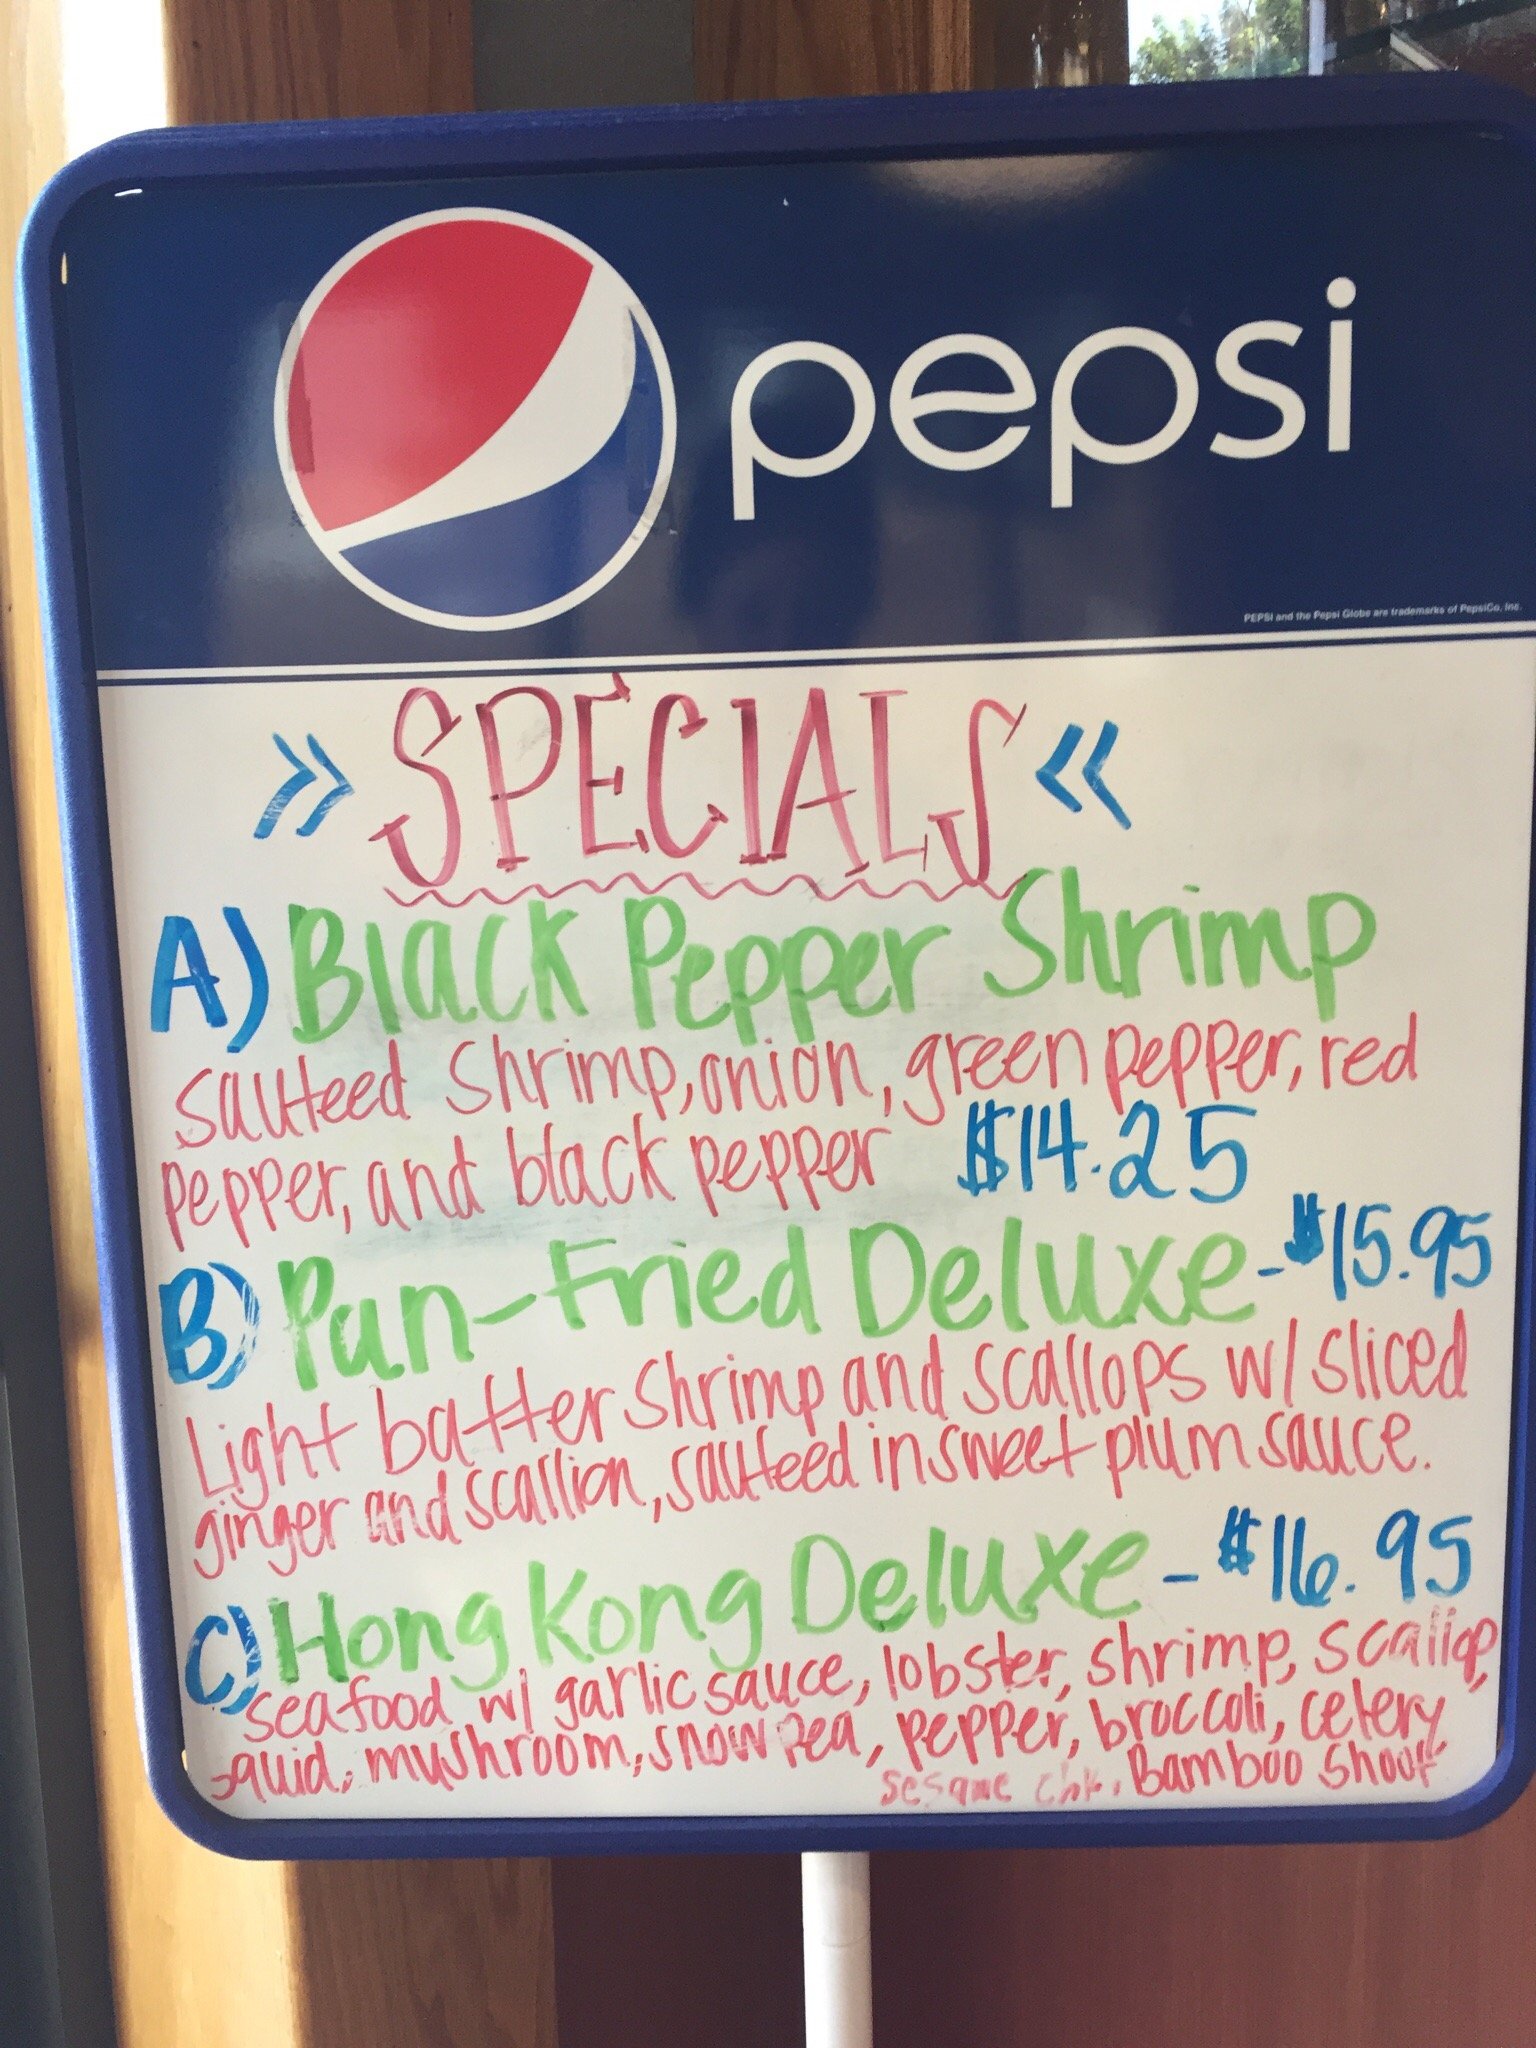 pepsi
PEPSI and the Pepsi Globe are trademarks of PepsiCo, Inc.
>> SPECIALS <<
A) Black Pepper Shrimp
Sauteed Shrimp, onion, green pepper, red
pepper, and black pepper $14.25
B) Pan-Fried Deluxe - $15.95
Light batter Shrimp and scallops w/ sliced
ginger and scallion, sauteed in sweet plum sauce.
C) Hong Kong Deluxe - $16.95
seafood w/ garlic sauce, lobster, shrimp, scallop,
squid, mushroom, snow pea, pepper, broccoli, celery,
sesame Bamboo shoot